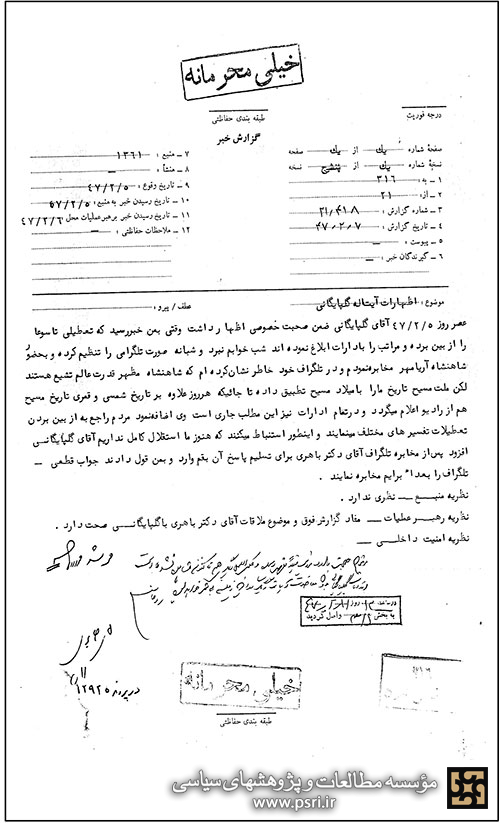 خیلی محرمانه
طبقه بندی حفاظتی
درجه فوریت
گزارش خبر
صفحه شماره یك از یك صفحه
نسخه شماره یك از پنج نسخه
۱ - به : ۳۱۶
۲ - از : ۲۱
۳ - شماره گزارش : ۲۱/۴۱۸
۴ - تاریخ گزارش : ۴۷/۲/۷
۵ - پیوست : —
۶ - گیرندگان خبر : —
۷ - منبع : ۱۳۶۱
۸ - منشأ : —
۹ - تاریخ وقوع : ۴۷/۲/۵
۱۰ - تاریخ رسیدن خبر به منبع : ۴۷/۲/۵
۱۱ - تاریخ رسیدن خبر برهبر عملیات محل : ۴۷/۲/۶
۱۲ - ملاحظات حفاظتی : —
موضوع : اظهارات آیت اله گلپایگانی عطف / پیرو :
عصر روز ۴۷/۲/۵ آقای گلپایگانی ضمن صحبت خصوصی اظهار داشت وقتی بمن خبر رسید که تعطیلی تاسوعا
را از بین برده و مراتب را بادارات ابلاغ نموده اند شب خوابم نبرد و شبانه صورت تلگرامی را تنظیم کرده و بحضور
شاهنشاه آریامهر مخابره نمودم و در تلگراف خود خاطر نشان کرده ام که شاهنشاه مظهر قدرت عالم تشیع هستند
لکن ملت مسیح تاریخ مارا بامیلاد مسیح تطبیق داده تا جائیکه هر روز علاوه بر تاریخ شمسی و قمری تاریخ مسیح
هم از رادیو اعلام میگردد و در تمام ادارات نیز این مطلب جاری است وی اضافه نمود مردم راجع به از بین بردن
تعطیلات تفسیر های مختلف مینمایند و اینطور استنباط میکنند که هنوز ما استقلال کامل نداریم آقای گلپایگانی
افزود پس از مخابره تلگراف آقای دکتر باهری برای تسلیم پاسخ آن بقم وارد و بمن قول دادند جواب قطعی —
تلگراف را بعداً برایم مخابره نمایند .
نظریه منبع — نظری ندارد .
نظریه رهبر عملیات — مفاد گزارش فوق و موضوع ملاقات آقای دکتر باهری با گلپایگانی صحت دارد .
نظریه امنیت داخلی —
در ساعت روز
به بخش واصل گردید
در پرونده ۱۲۹۲۵
خیلی محرمانه
طبقه بندی حفاظتی
مؤسسه مطالعات و پژوهشهای سیاسی
www.psri.ir